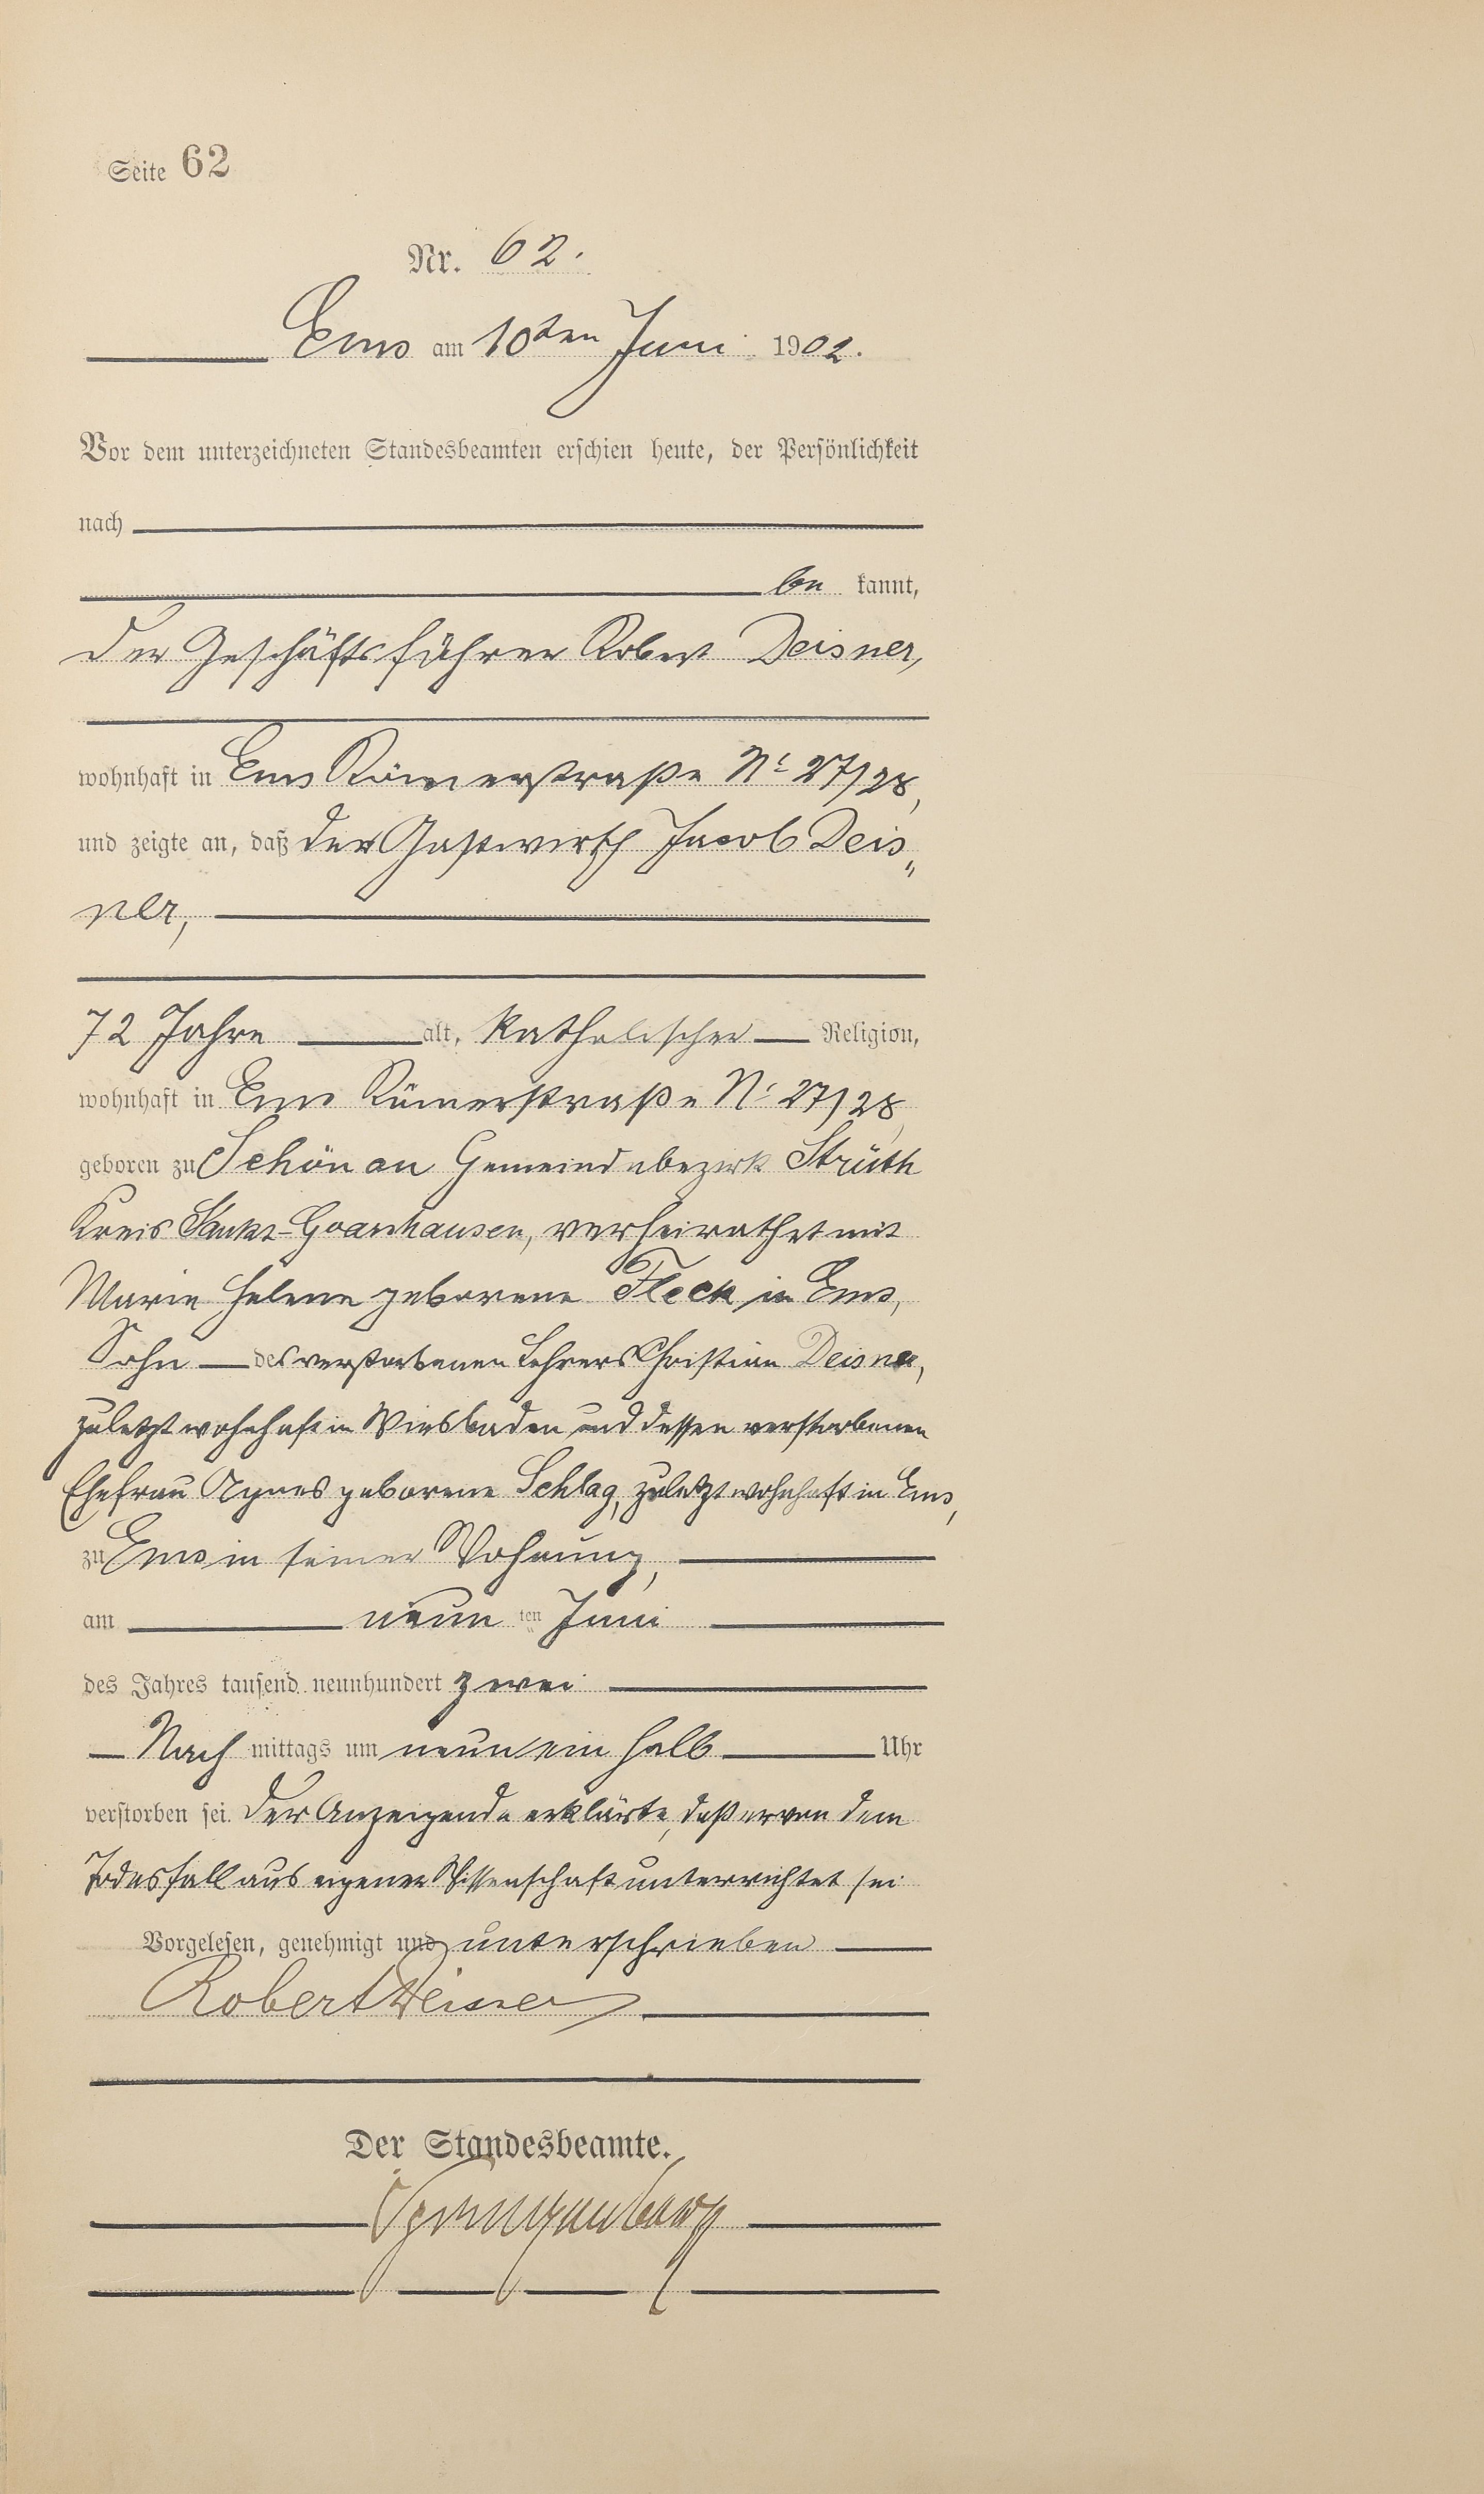 Seite 62
Nr. 62.
Ems am 10ten Juni 1902.
Vor dem unterzeichneten Standesbeamten erschien heute, der Persönlichkeit
nach
be kannt,
der Geschäftsführer Robert Deisner,
wohnhaft in Ems Römerstraße No 27/28,
und zeigte an, daß der Gastwirth Jacob Deis„
ner,
72 Jahre alt, katholischer Religion,
wohnhaft in Ems Römerstraße No 27/28
geboren zu Schönau Gemeindebezirk Strüth
Kreis Sankt-Goarshausen, verheirathet mit
Marie Helene geborene Fleck in Ems,
Sohn des verstorbenen Lehrers Christian Deisner,
zuletzt wohnhaft in Wiesbaden und dessen verstorbenen
Ehefrau Agnes geborene Schlag, zuletzt wohnhaft in Ems,
zu Ems in seiner Wohnung,
am neun ten Juni
des Jahres tausend neunhundert zwei
Nach mittags um neun ein halb Uhr
verstorben sei. Der Anzeigende erklärte, daß er von dem
Todesfall aus eigener Wissenschaft unterrichtet sei
Vorgelesen, genehmigt und unterschrieben
Robert Deisner
Der Standesbeamte.